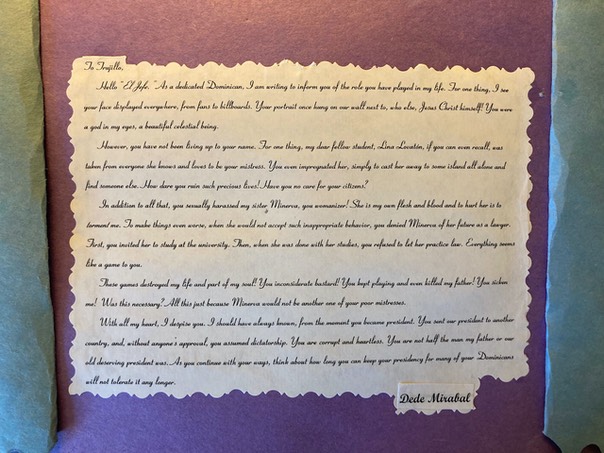 To Trujillo,
Hello "El Jefe. "As a dedicated Dominican, I am writing to inform you of the role you have played in my life. For one thing, I see
your face displayed everywhere, from fans to billboards. Your portrait once hung on our wall next to, who else, Jesus Christ himself! You were
a god in my eyes, a beautiful celestial being.
However, you have not been living up to your name. For one thing, my dear fellow student, Lina Lovatón, if you can even recall, was
taken from everyone she knows and loves to be your mistress. You even impregnated her, simply to cast her away to some island all alone and
find someone else. How dare you ruin such precious lives! Have you no care for your citizens?
In addition to all that, you sexually harassed my sister Minerva, you womanizer! She is my own flesh and blood and to hurt her is to
torment me. To make things even worse, when she would not accept such inappropriate behavior, you denied Minerva of her future as a lawyer.
First, you invited her to study at the university. Then, when she was done with her studies, you refused to let her practice law. Everything seems
like a game to you.
These games destroyed my life and part of my soul! You inconsiderate bastard! You kept playing and even killed my father! You sicken
me! Was this necessary? All this just because Minerva would not be another one of your poor mistresses.
With all my heart, I despise you. I should have always known, from the moment you became president. You sent our president to another
country, and, without anyone's approval, you assumed dictatorship. You are corrupt and heartless. You are not half the man my father or our
old deserving president was. As you continue with your ways, think about how long you can keep your presidency for many of your Dominicans
will not tolerate it any longer.
Dede Mirabal